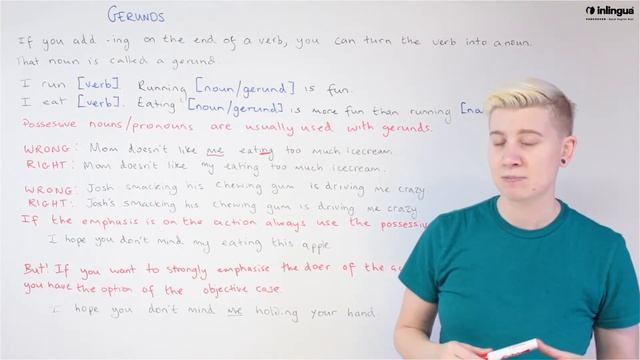 inlingua
GERUNDS
If you add -ing on the end of a verb, you can turn the verb into a noun.
That noun is called a gerund.
I run [verb]. Running [noun/gerund] is fun.
I eat [verb]. Eating [noun/gerund] is more fun than running
Possessive nouns/pronouns are usually used with gerunds.
WRONG: Mom doesn't like me eating too much icecream.
RIGHT: Mom doesn't like my eating too much icecream.
WRONG: Josh smacking his chewing gum is driving me crazy
RIGHT: Josh's smacking his chewing gum is driving me crazy
If the emphasis is on the action always use the
I hope you don't mind my eating this apple
But! If you want to strongly emphasise the doer of the
you have the option of the objective case.
I hope you don't mind me holding your hand.